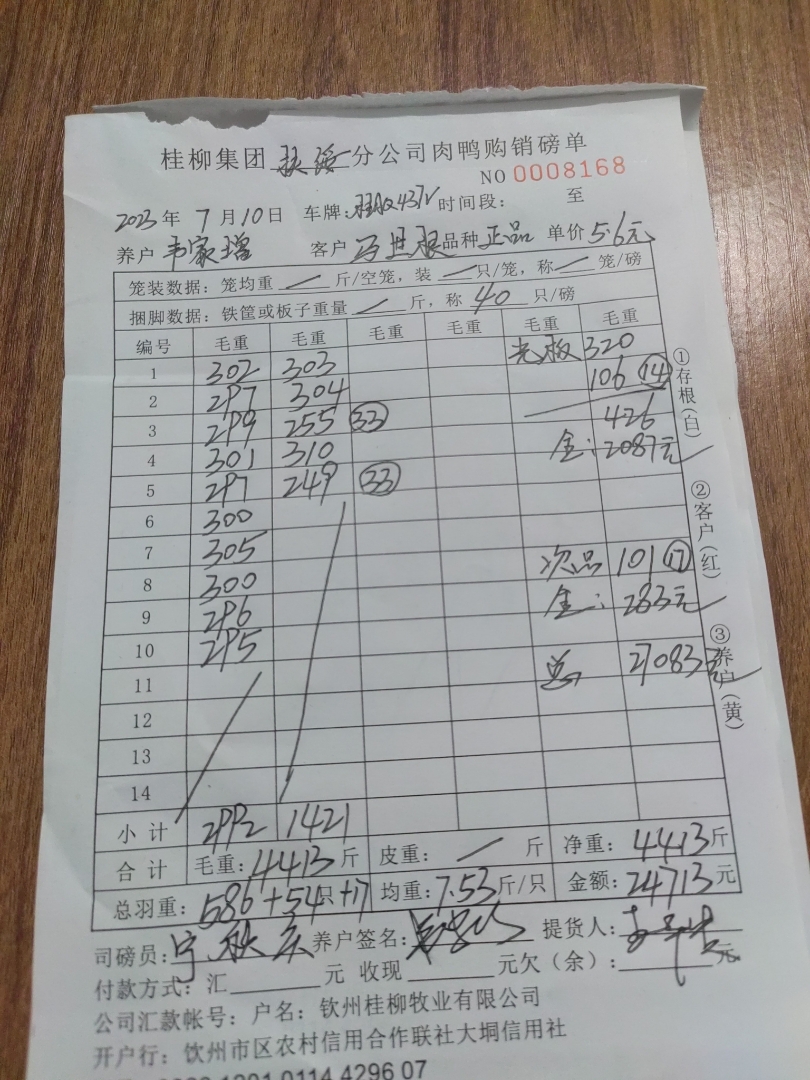 桂柳集团 分公司肉鸭购销磅单
NO 0008168
2023 年 7 月 10 日 车牌: 时间段: 至
养户 韦家增 客户 品种 正品 单价 5.6元
笼装数据: 笼均重 / 斤/空笼, 装 / 只/笼, 称 / 笼/磅
捆脚数据: 铁筐或板子重量 / 斤, 称 40 只/磅
编号 毛重 毛重 毛重 毛重 毛重 毛重
1 302 303 光板 320
2 297 304 106 ⑭
3 299 255 ㉝ 426
4 301 310 金: 2087元
5 297 249 ㉝
6 300
7 305 次品 101 ⑰
8 300 金: 283元
9 296
10 295 总 27083元
11
12
13
14
小计 2992 1421
合计 毛重: 4413 斤 皮重: / 斤 净重: 4413 斤
总羽重: 586+54只+17 均重: 7.53 斤/只 金额: 24713 元
司磅员: 宁秋庆 养户签名: 提货人:
付款方式: 汇 元 收现 元欠(余): 元
公司汇款帐号: 户名: 钦州桂柳牧业有限公司
开户行: 钦州市区农村信用合作联社大垌信用社
0114 4296 07
①存根(白)
②客户(红)
③养户(黄)